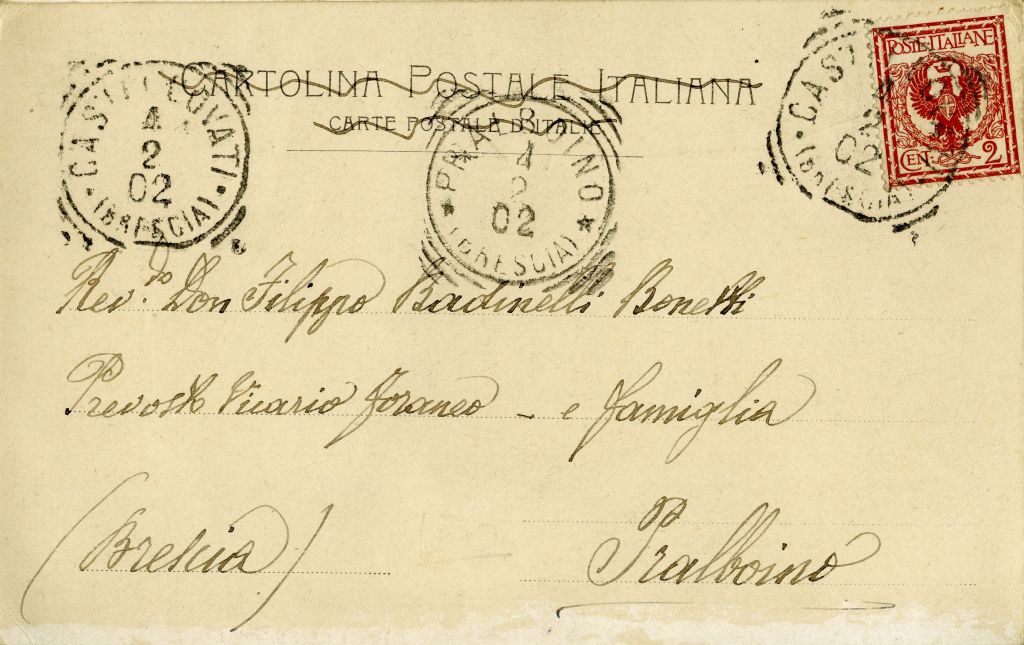 CARTOLINA POSTALE ITALIANA
CARTE POSTALE D'ITALIE
POSTE ITALIANE
CEN. 2
CASTELCOVATI
4
2
02
(BRESCIA)
PRALBOINO
4
2
02
(BRESCIA)
CAST
02
(BRESCIA)
Rev.do Don Filippo Badinelli Bonetti
Prevosto Vicario foraneo - e famiglia
(Brescia)
Pralboino